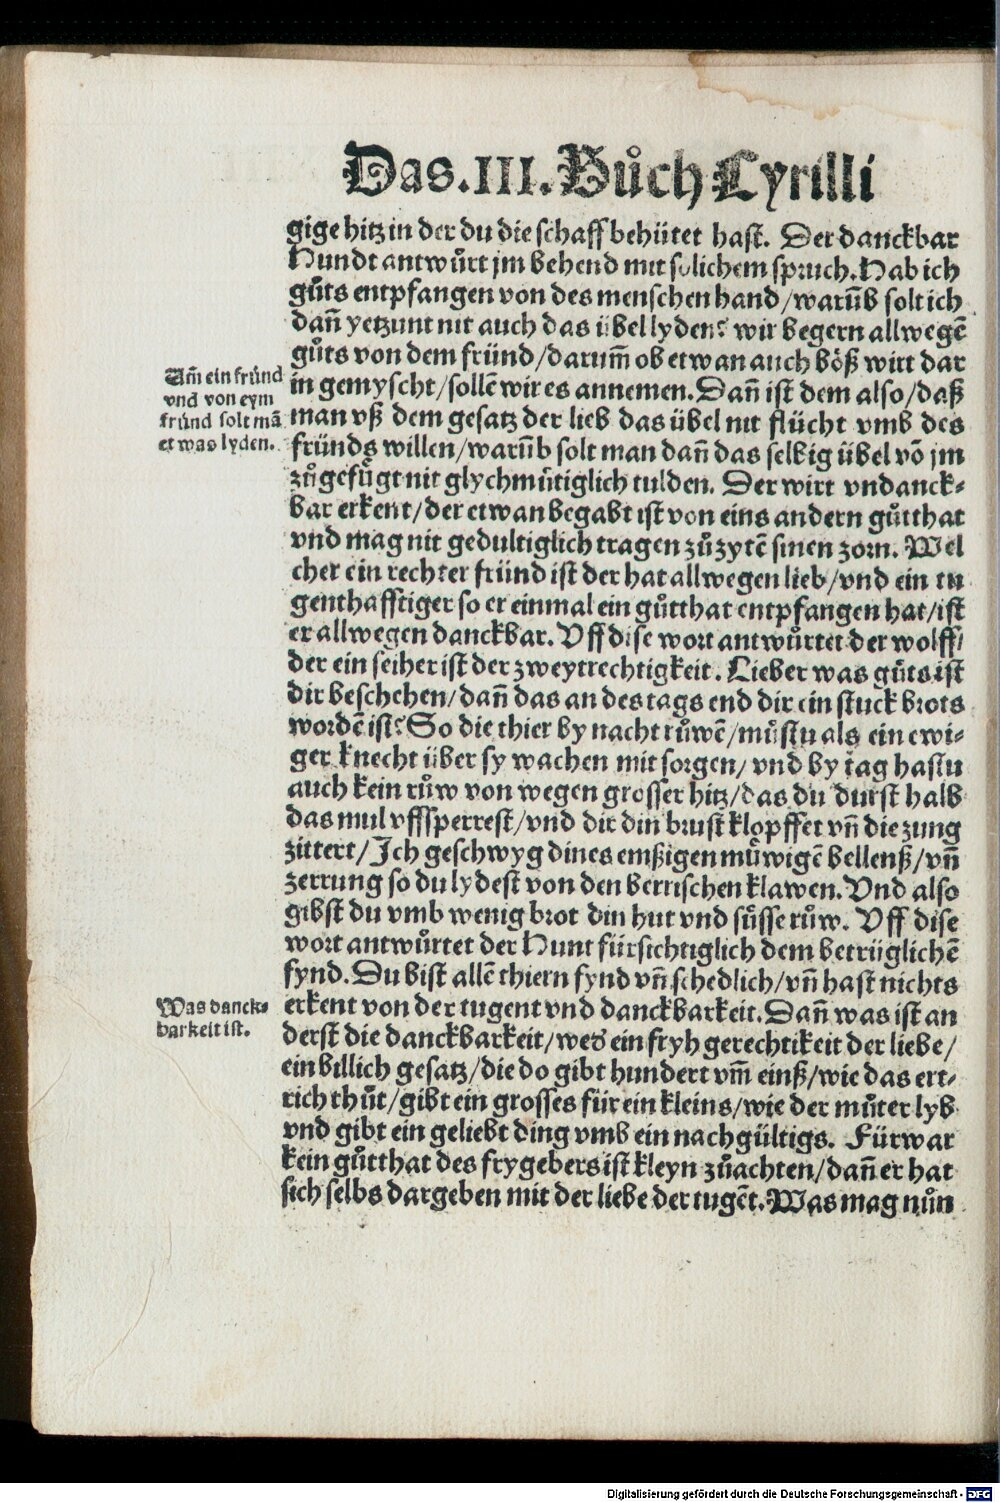 Das.III.Bůch Cyrilli
gige hitz in der du die schaff behütet hast. Der danckbar
Hundt antwůrt jm behend mit solichem spruch. Hab ich
gůts entpfangen von des menschen hand/warūb solt ich
dañ yetzunt nit auch das übel lyden? wir begern allwegē
gůts von dem fründ/darum̄ ob etwan auch böß wirt dar
Am̄ ein fründ
vnd von eym
fründ solt mā
etwas lyden.
in gemyscht/sollē wir es annemen. Dañ ist dem also/daß
man vß dem gesatz der lieb das übel nit flücht vmb des
fründs willen/warūb solt man dañ das selbig übel vō jm
zůgefůgt nit glychmůtiglich tulden. Der wirt vndanck⸗
bar erkent/der etwan begabt ist von eins andern gůtthat
vnd mag nit gedultiglich tragen zůzytē sinen zorn. Wel
cher ein rechter fründ ist der hat allwegen lieb/vnd ein tu
genthafftiger so er einmal ein gůtthat entpfangen hat/ist
er allwegen danckbar. Vff dise wort antwůrtet der wolff/
der ein seiher ist der zweytrechtigkeit. Lieber was gůts ist
dir beschehen/dañ das an des tags end dir ein stuck brots
wordē ist? So die thier by nacht růwē/můstu als ein ewi⸗
ger knecht über sy wachen mit sorgen/vnd by tag hastu
auch kein růw von wegen grosser hitz/das du durst halb
das mul vffsperrest/vnd dir din brust klopffet vñ die zung
zittert/Ich geschwyg dines emßigen můwigē bellenß/vñ
zerrung so du lydest von den berrischen klawen. Vnd also
gibst du vmb wenig brot din hut vnd sůsse růw. Vff dise
wort antwůrtet der Hunt fürsichtiglich dem betrüglichē
fynd. Du bist allē thiern fynd vñ schedlich/vñ hast nichts
Was danck⸗
barkeit ist.
erkent von der tugent vnd danckbarkeit. Dañ was ist an
derst die danckbarkeit/wed ein fryh gerechtikeit der liebe/
ein billich gesatz/die do gibt hundert vm̄ einß/wie das ert⸗
rich thůt/gibt ein grosses für ein kleins/wie der můter lyb
vnd gibt ein geliebt ding vmb ein nachgültigs. Fürwar
kein gůtthat des frygebers ist kleyn zůachten/dañ er hat
sich selbs dargeben mit der liebe der tugēt. Was mag nůn
Digitalisierung gefördert durch die Deutsche Forschungsgemeinschaft - DFG